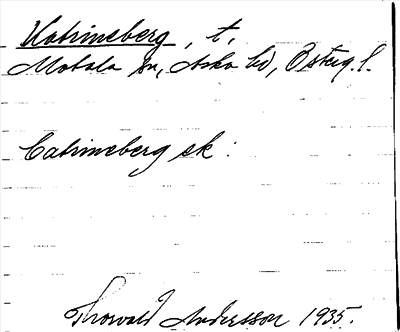 Katrineberg, t,
Motala sn, Aska hd, Östergl.
Catrineberg sk:
Thorvald Andersson 1935.